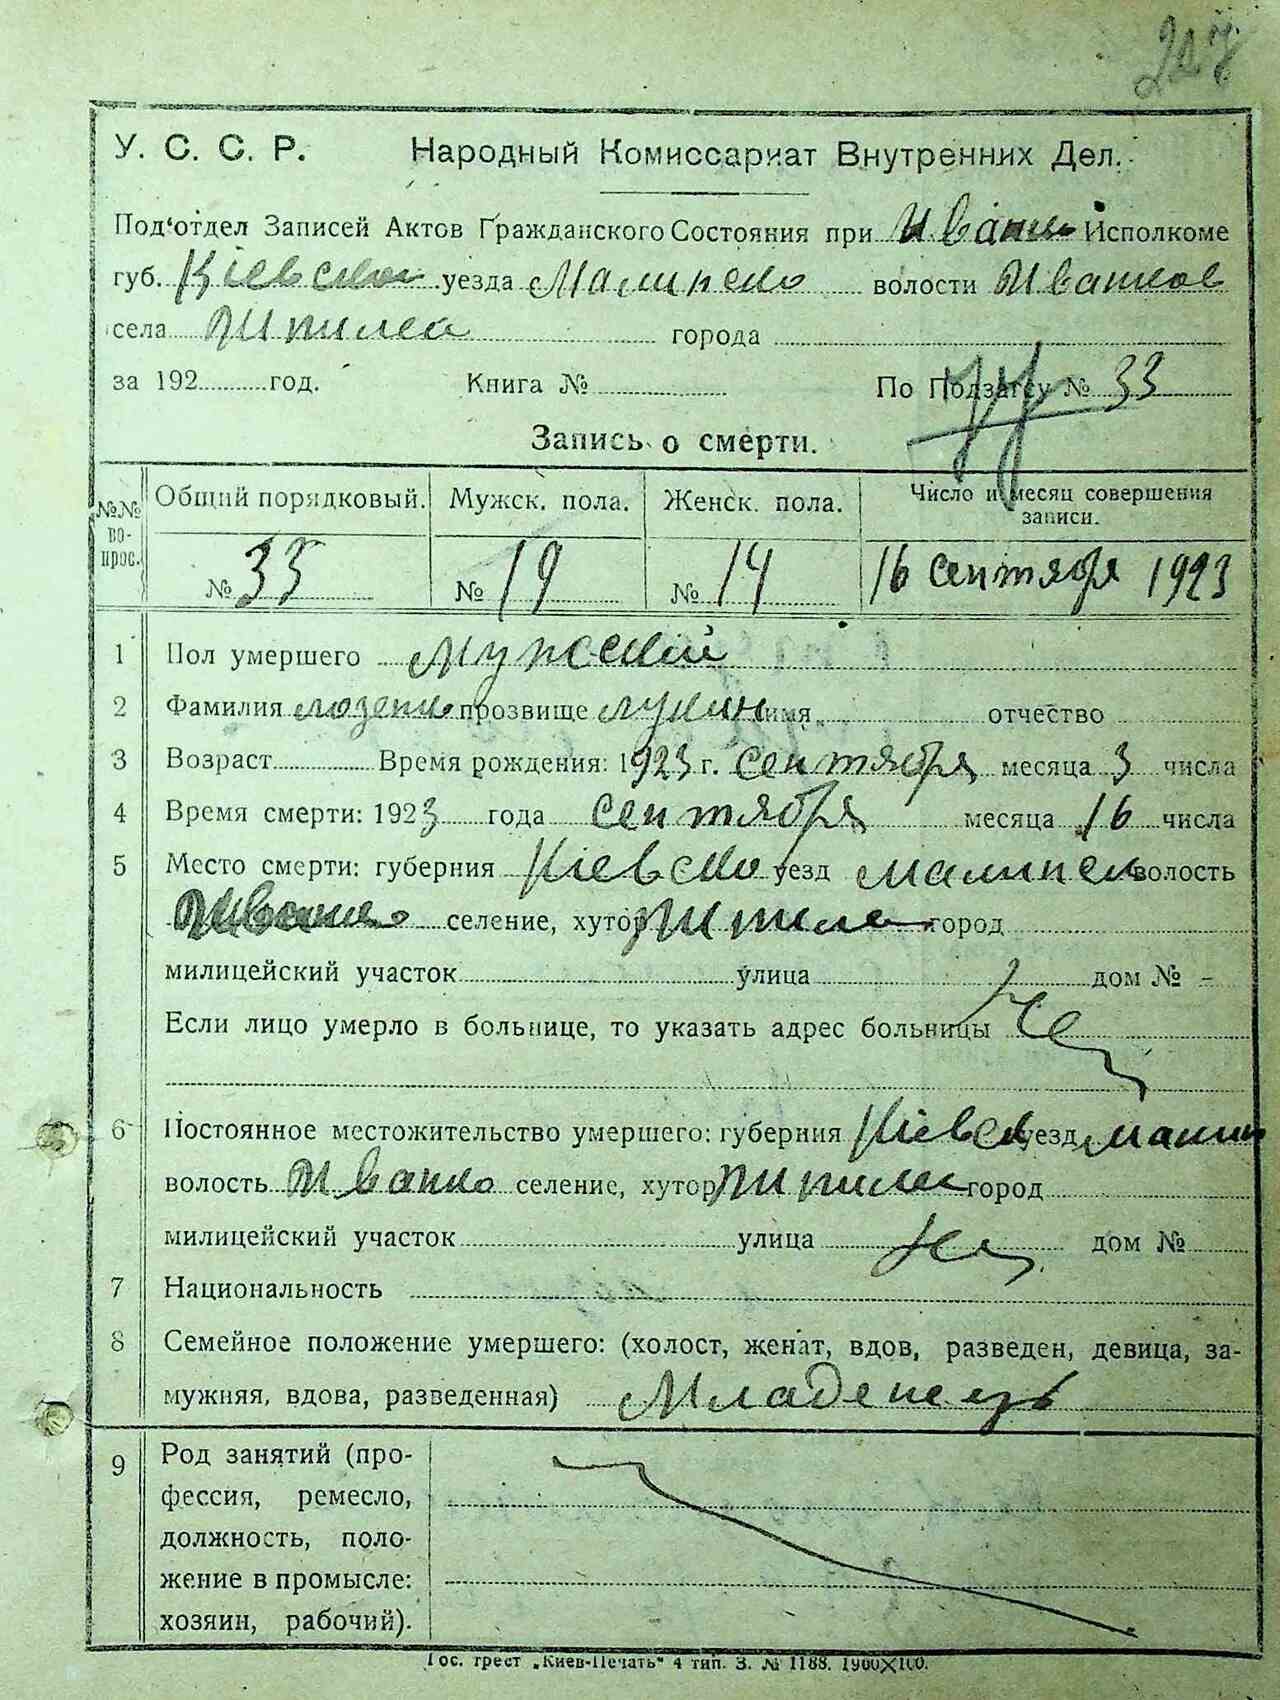 227
У. С. С. Р. Народный Комиссариат Внутренних Дел.
Под'отдел Записей Актов Гражданского Состояния при Иванк Исполкоме
губ. Кіевской уезда Малинско волости Иванков
села Шпилей города
за 192 год. Книга № По Подзагсу № 33
Запись о смерти.
№№ вопрос. Общий порядковый. Мужск. пола. Женск. пола. Число и месяц совершения записи.
№ 33 № 19 № 14 16 сентября 1923
1 Пол умершего мужской
2 Фамилия прозвище имя отчество
3 Возраст Время рождения: 1923 г. сентября месяца 3 числа
4 Время смерти: 1923 года сентября месяца 16 числа
5 Место смерти: губерния Кіевско уезд малинск волость
Иванко селение, хутор город
милицейский участок улица дом № -
Если лицо умерло в больнице, то указать адрес больницы
6 Постоянное местожительство умершего: губерния Кіевск уезд малин
волость Иванко селение, хутор город
милицейский участок улица дом №
7 Национальность
8 Семейное положение умершего: (холост, женат, вдов, разведен, девица, за-
мужняя, вдова, разведенная) Младенецъ
9 Род занятий (про-
фессия, ремесло,
должность, поло-
жение в промысле:
хозяин, рабочий).
Гос. трест „Киев-Печать" 4 тип. З. № 1188. 1900X100.